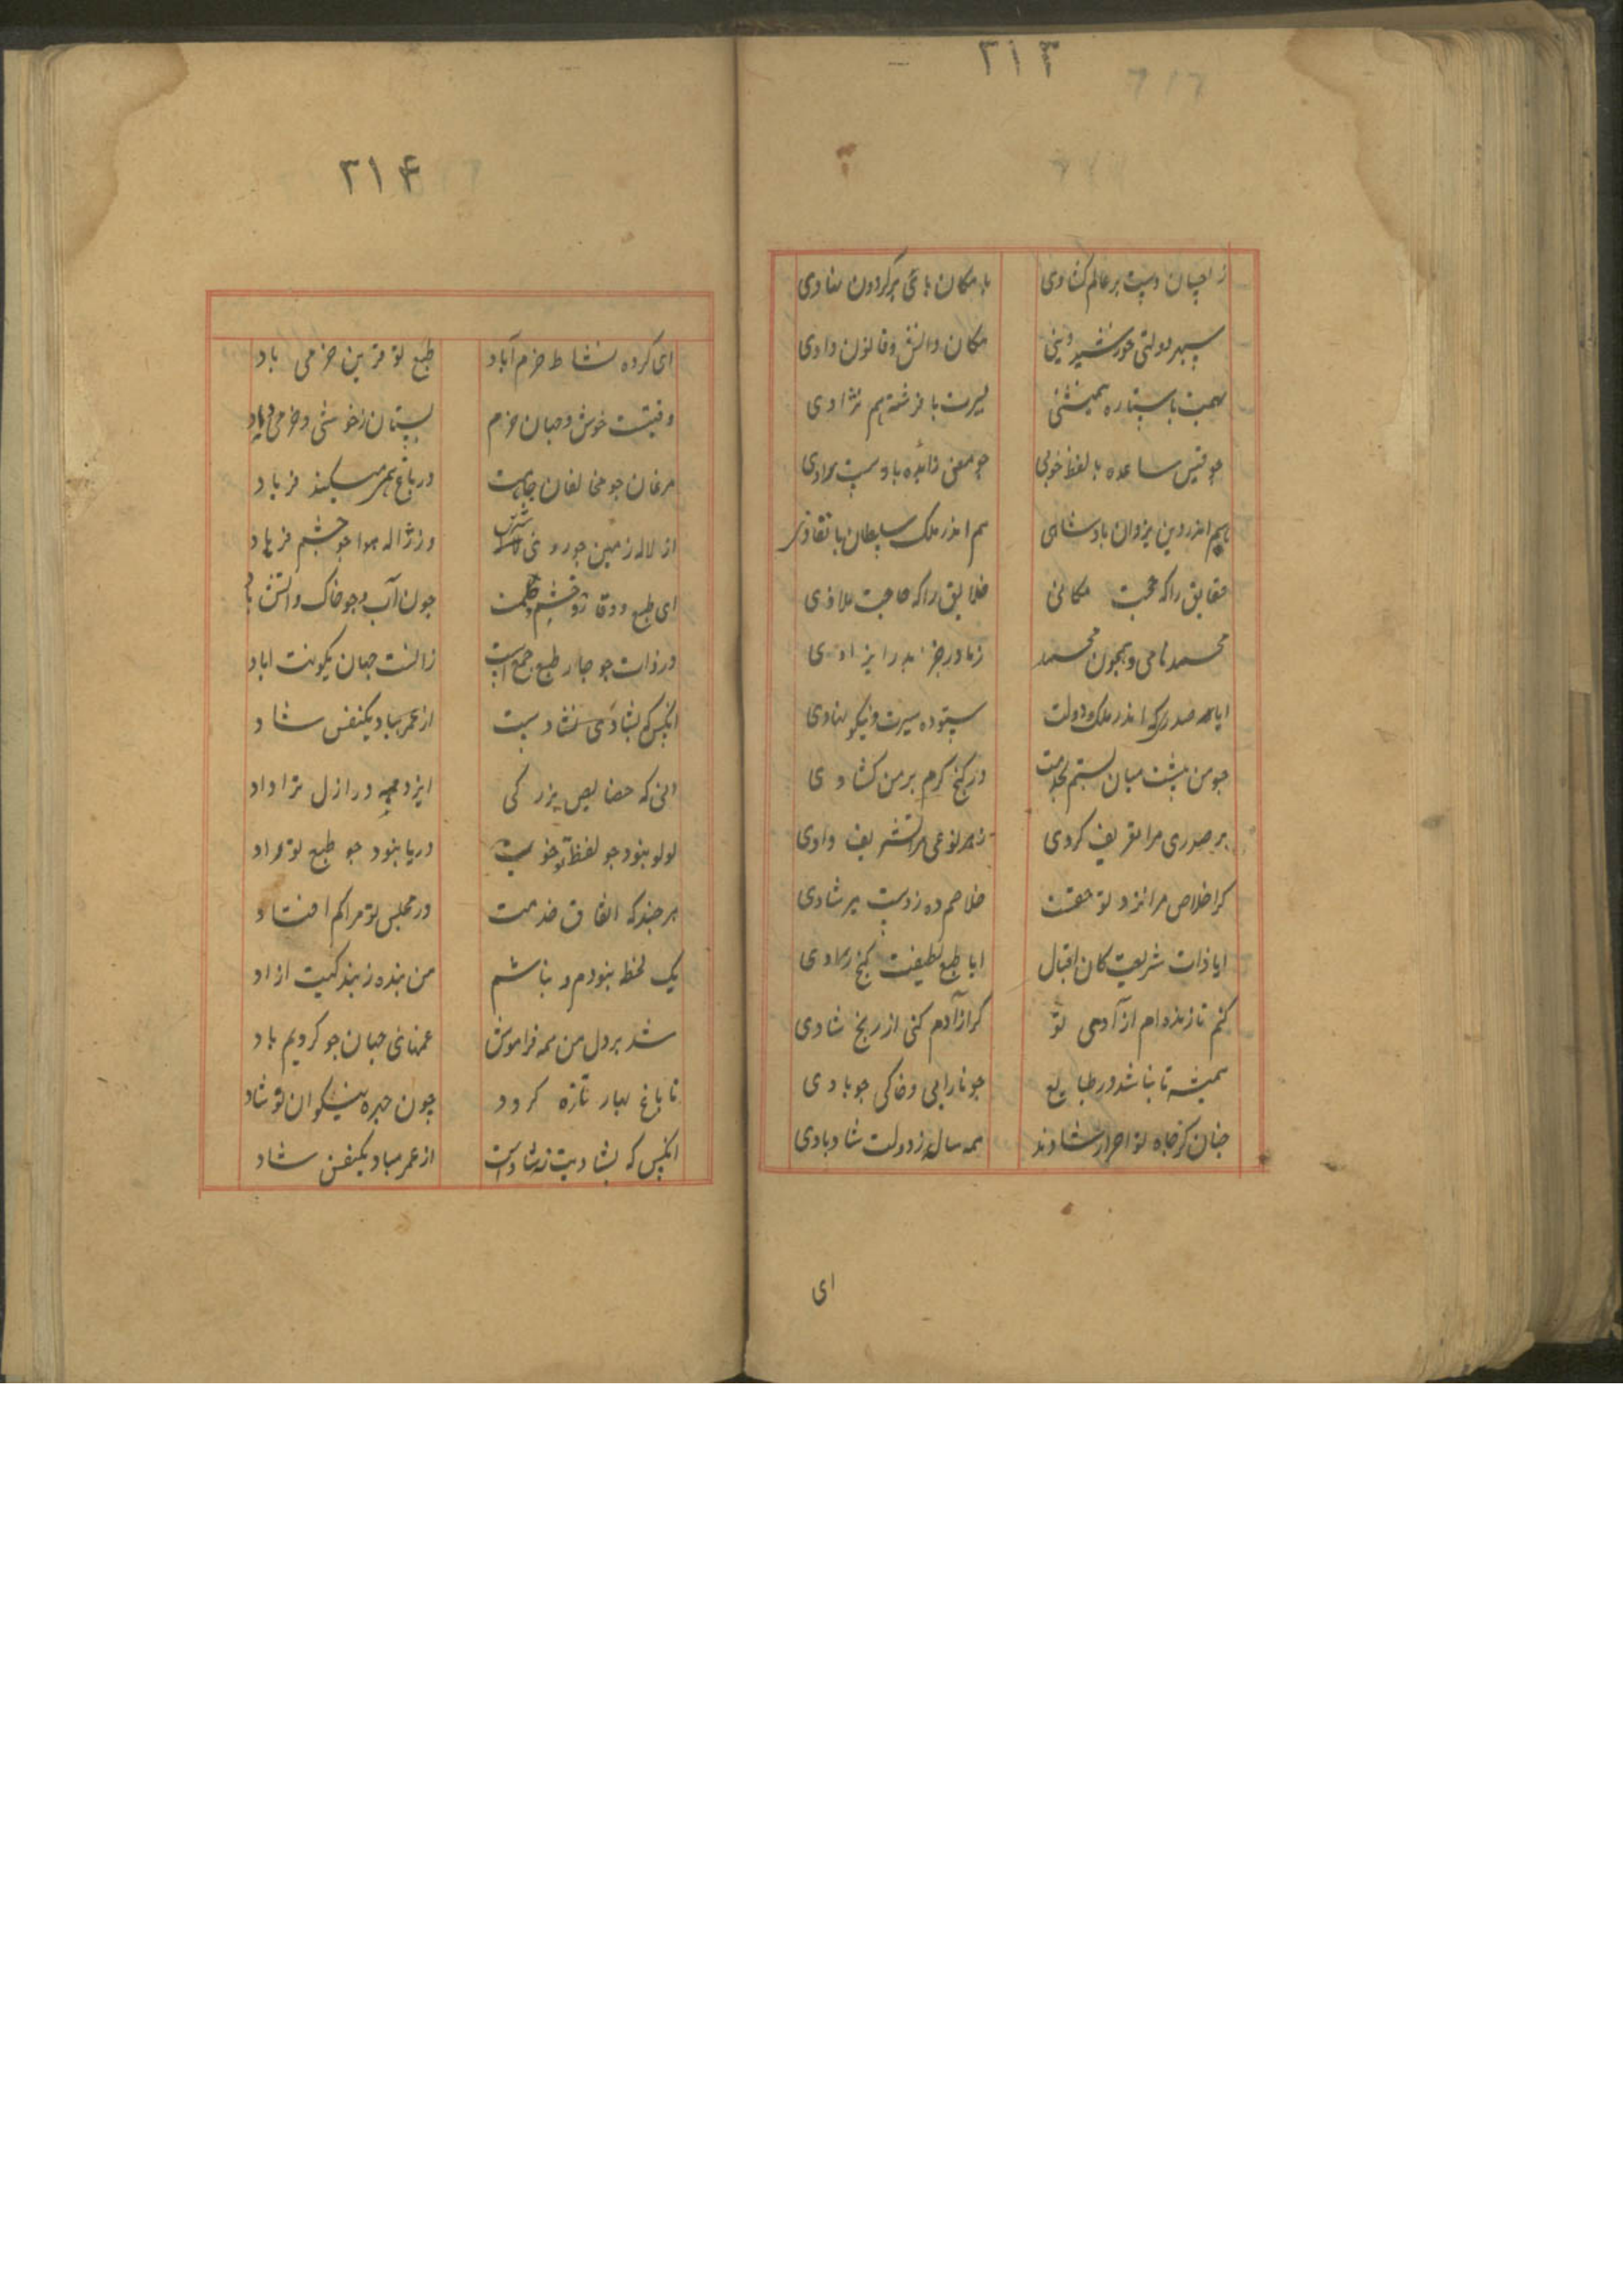 ۳۱۳
ز احسان دست بر عالم کشادی با مکان پای بر گردون نهادی
سپهر دولتی خورشید دینی مکان دانش و قانون دادی
بهمت با ستاره همنشینی بسیرت با فرشته هم نژادی
چو قیس ساعده با لفظ خوبی چو معن زائده با دست رادی
بهم اندر دین یزدان پادشاهی هم اندر ملک سلطان با نفاذی
حقایق را که حجت مکانی خلایق را که حاجت ملاذی
محمد نامی و همچون محمد ز مادر جز
ایا صدری که اندر ملک و دولت ستوده سیرت و نیکو نهادی
چو من پیشت میان بستم بخدمت در گنج کرم بر من کشادی
بر صدری مرا تعریف کردی ز هر نوعی مرا تشریف دادی
گر اخلاص مرا نزد تو حقست خلاصم ده ز دست بیر شادی
ایا ذات شریفت کان اقبال ایا طبع لطیفت گنج رادی
کنم تا زنده‌ام از آدمی تو گر از آدم کنی از رنج شادی
همیشه تا بناشد در طبایع چو نار ابی و خاکی چو بادی
چنان کز جاه تو احرار شادند همه سال ز دولت شاد بادی
ای
۳۱۴
ای کرده نشاط خرم آباد طبع تو قرین خرمی باد
وقتیست خوش و جهان خرم بستان ز خوشی و خرمی داد
مرغان چو مخالفان جاهت در باغ همی کنند فریاد
از لاله زمین چو روی شیرین وز ژاله هوا چو چشم فرهاد
ای طبع و وقار و خشم و حلمت چون آب و چو خاک و آتش و باد
در ذات چو چار طبع جمع است زانست جهان بکونت اباد
انکس که بشادی تو شاد نیست از عمر مباد یکنفس شاد
انی که خصایص بزرگی ایزد همه در ازل ترا داد
لولو بنود چو لفظ تو خوب دریا بنود چو طبع تو راد
هر چند که اتفاق خدمت در مجلس تو مرا کم افتاد
یک لحظه بنودم و بناشم من بنده ز بندگیت ازاد
شد بر دل من همه فراموش غمهای جهان چو کردیم یاد
تا باغ بهار تازه گردد چون چهره نیکوان نوشاد
انکس که بشادیت نه شادست از عمر مباد یکنفس شاد